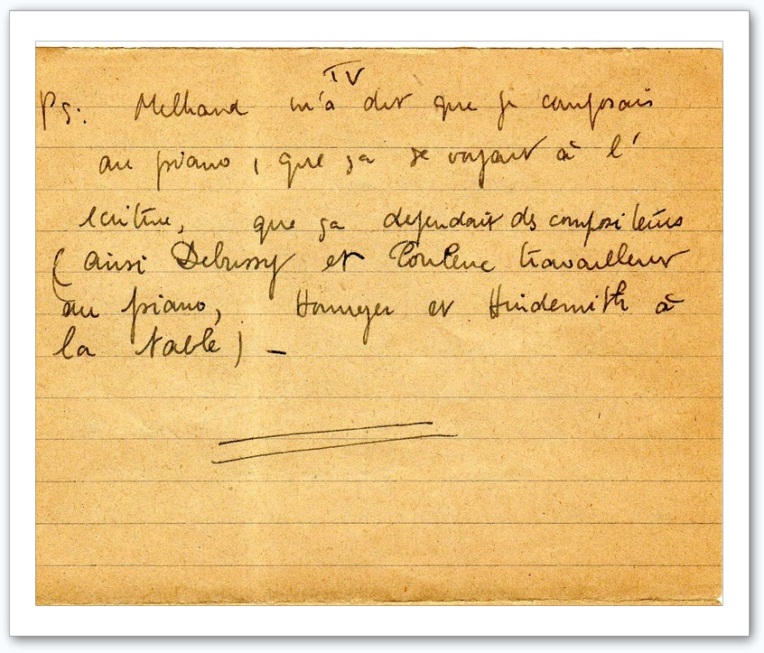 IV
Ps: Milhaud m'a dit que je composais
au piano, que ça se voyait à l'
écriture, que ça dépendait des compositeurs
(ainsi Debussy et Poulenc travaillent
au piano, Honegger et Hindemith à
la table) -